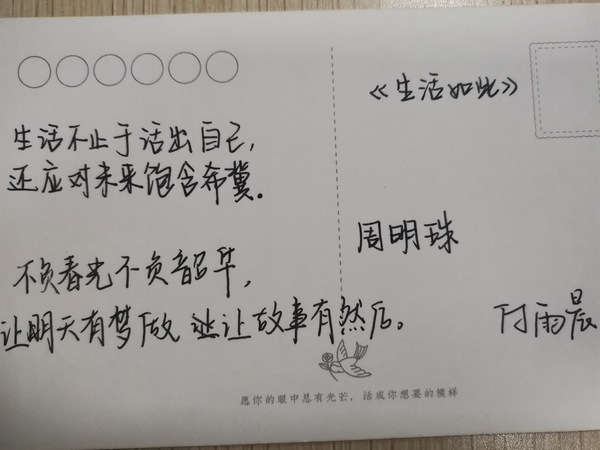 《生活如此》
生活不止于活出自己，
还应对未来饱含希冀。
周明珠
不负春光不负韶华，
让明天有梦做 让故事有然后。
付雨晨
愿你的眼中总有光芒，活成你想要的模样